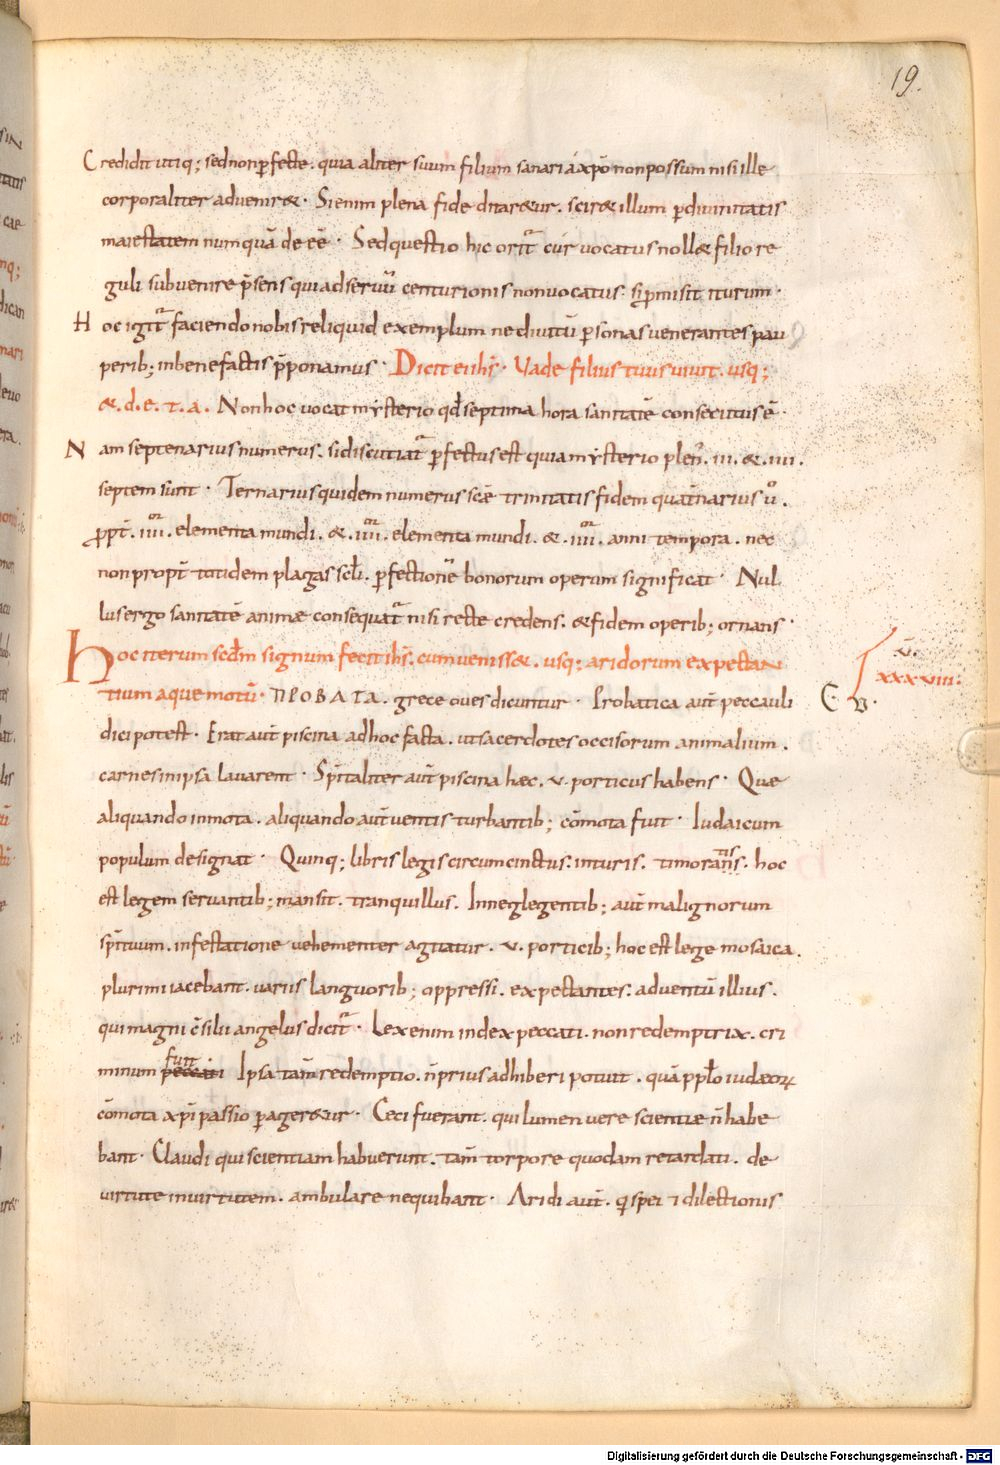 19.
Credidit utiq; sed non ꝑfecte. quia aliter suum filium sanari a xp̄o non possum nisi ille
corporaliter adveniret. Si enim plena fide ditaretur. sciret illum ꝑ divinitatis
maiestatem numquā de eē. Sed questio hic oritur cur vocatus nollet filio re
guli subvenire p̄sens qui ad servū centurionis non vocatus. si ꝑmisit iturum.
Hoc igitur faciendo nobis reliquid exemplum ne divitū ꝑsonas venerantes pau
perib; in benefactis p̄ponamus. Dicit ei ihs̄. Vade filius tuus vivit. usq;
&. d. e. t. a. Non hoc vocat mysterio qđ septima hora sanitatē consecutus ē.
Nam septenarius numerus. si discutiatur ꝑfectus est quia mysterio plen᷒. iii. &. iiii.
septem sunt. Ternarius quidem numerus scē trinitatis fidem quat̄narius ů.
ꝓpt̄. iiii.or elementa mundi. &. iiii.or elementa mundi. &. iiii.or anni tempora. nec
non propt̄ totidem plagas scl̄i. ꝑfectionē bonorum operum significat. Nul
lus ergo sanitatē animæ consequatur nisi recte credens. & fidem operib; ornans.
Hoc iterum scd̄m signum fecit ihs̄. cum venisset. usq; aridorum expectan
tium aque motū. ΠΡΟΒΑΤΑ. grece oves dicuntur. Probatica aut̄ peccauli
v.
xxxviii:
C. v.
dici potest. Erat aut̄ piscina ad hoc facta. ut sacerdotes occisorum animalium.
carnes in ipsa lavarent. Sp̄italiter aut̄ piscina hæc. v. porticus habens. Quæ
aliquando inmota. aliquando aut̄ ventis turbantib; cōmota fuit. Iudaicum
populum designat. Quinq; libris legis circumcinctus. in turis. timorantis. hoc
est legem servantib; mansit. tranquillus. In neglegentib; aut̄ malignorum
sp̄ituum. infestatione vehementer agitatur. v. porticib; hoc est lege mosaica.
plurimi iacebant. variis languorib; oppressi. expectantes. adventū illius.
qui magni c̄silii angelus dicitur. Lex enim index peccati. non redemptrix. cri
minum fuit. Ipsa tam̄ redemptio. n̄ prius adhiberi potuit. quā ppl̄o iudæoꝝ
cōmota xp̄i passio ꝑageretur. Ceci fuerant. qui lumen vere scientiæ n̄ habe
bant. Claudi qui scientiam habuerunt. tam̄ torpore quodam retardati. de
virtute in virtutem. ambulare nequibant. Aridi aut̄. qi spei ⁊ dilectionis
Digitalisierung gefördert durch die Deutsche Forschungsgemeinschaft - DFG